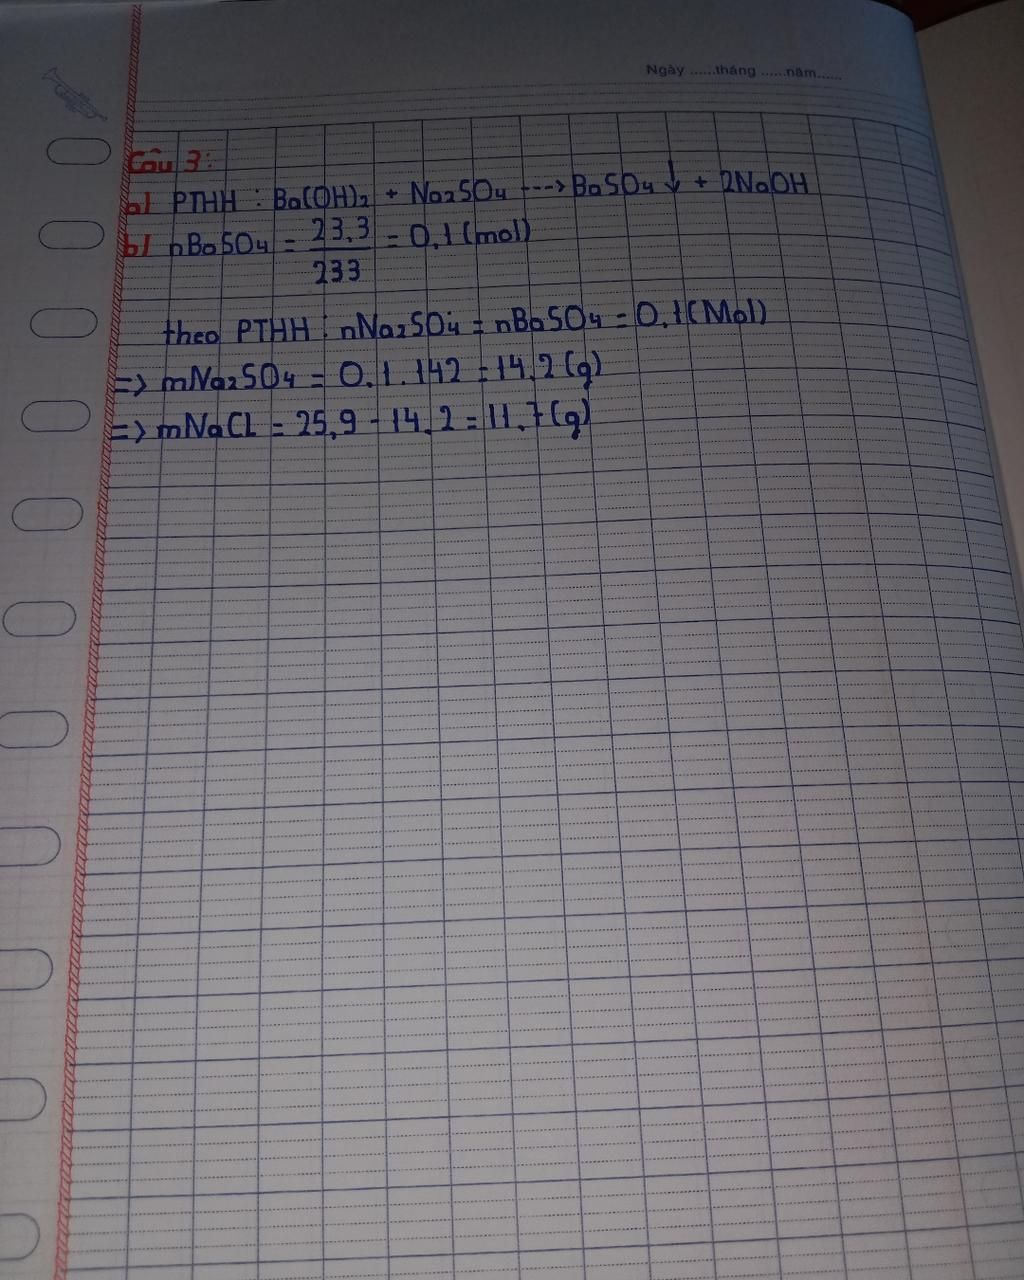 Ngày ......tháng ......năm......
Câu 3:
a/ PTHH : Ba(OH)2 + Na2SO4 ---> BaSO4 ↓ + 2NaOH
b/ nBaSO4 = 23,3/233 = 0,1 (mol)
theo PTHH : nNa2SO4 = nBaSO4 = 0,1 (Mol)
=> mNa2SO4 = 0,1.142 = 14,2 (g)
=> mNaCL = 25,9 - 14,2 = 11,7 (g)